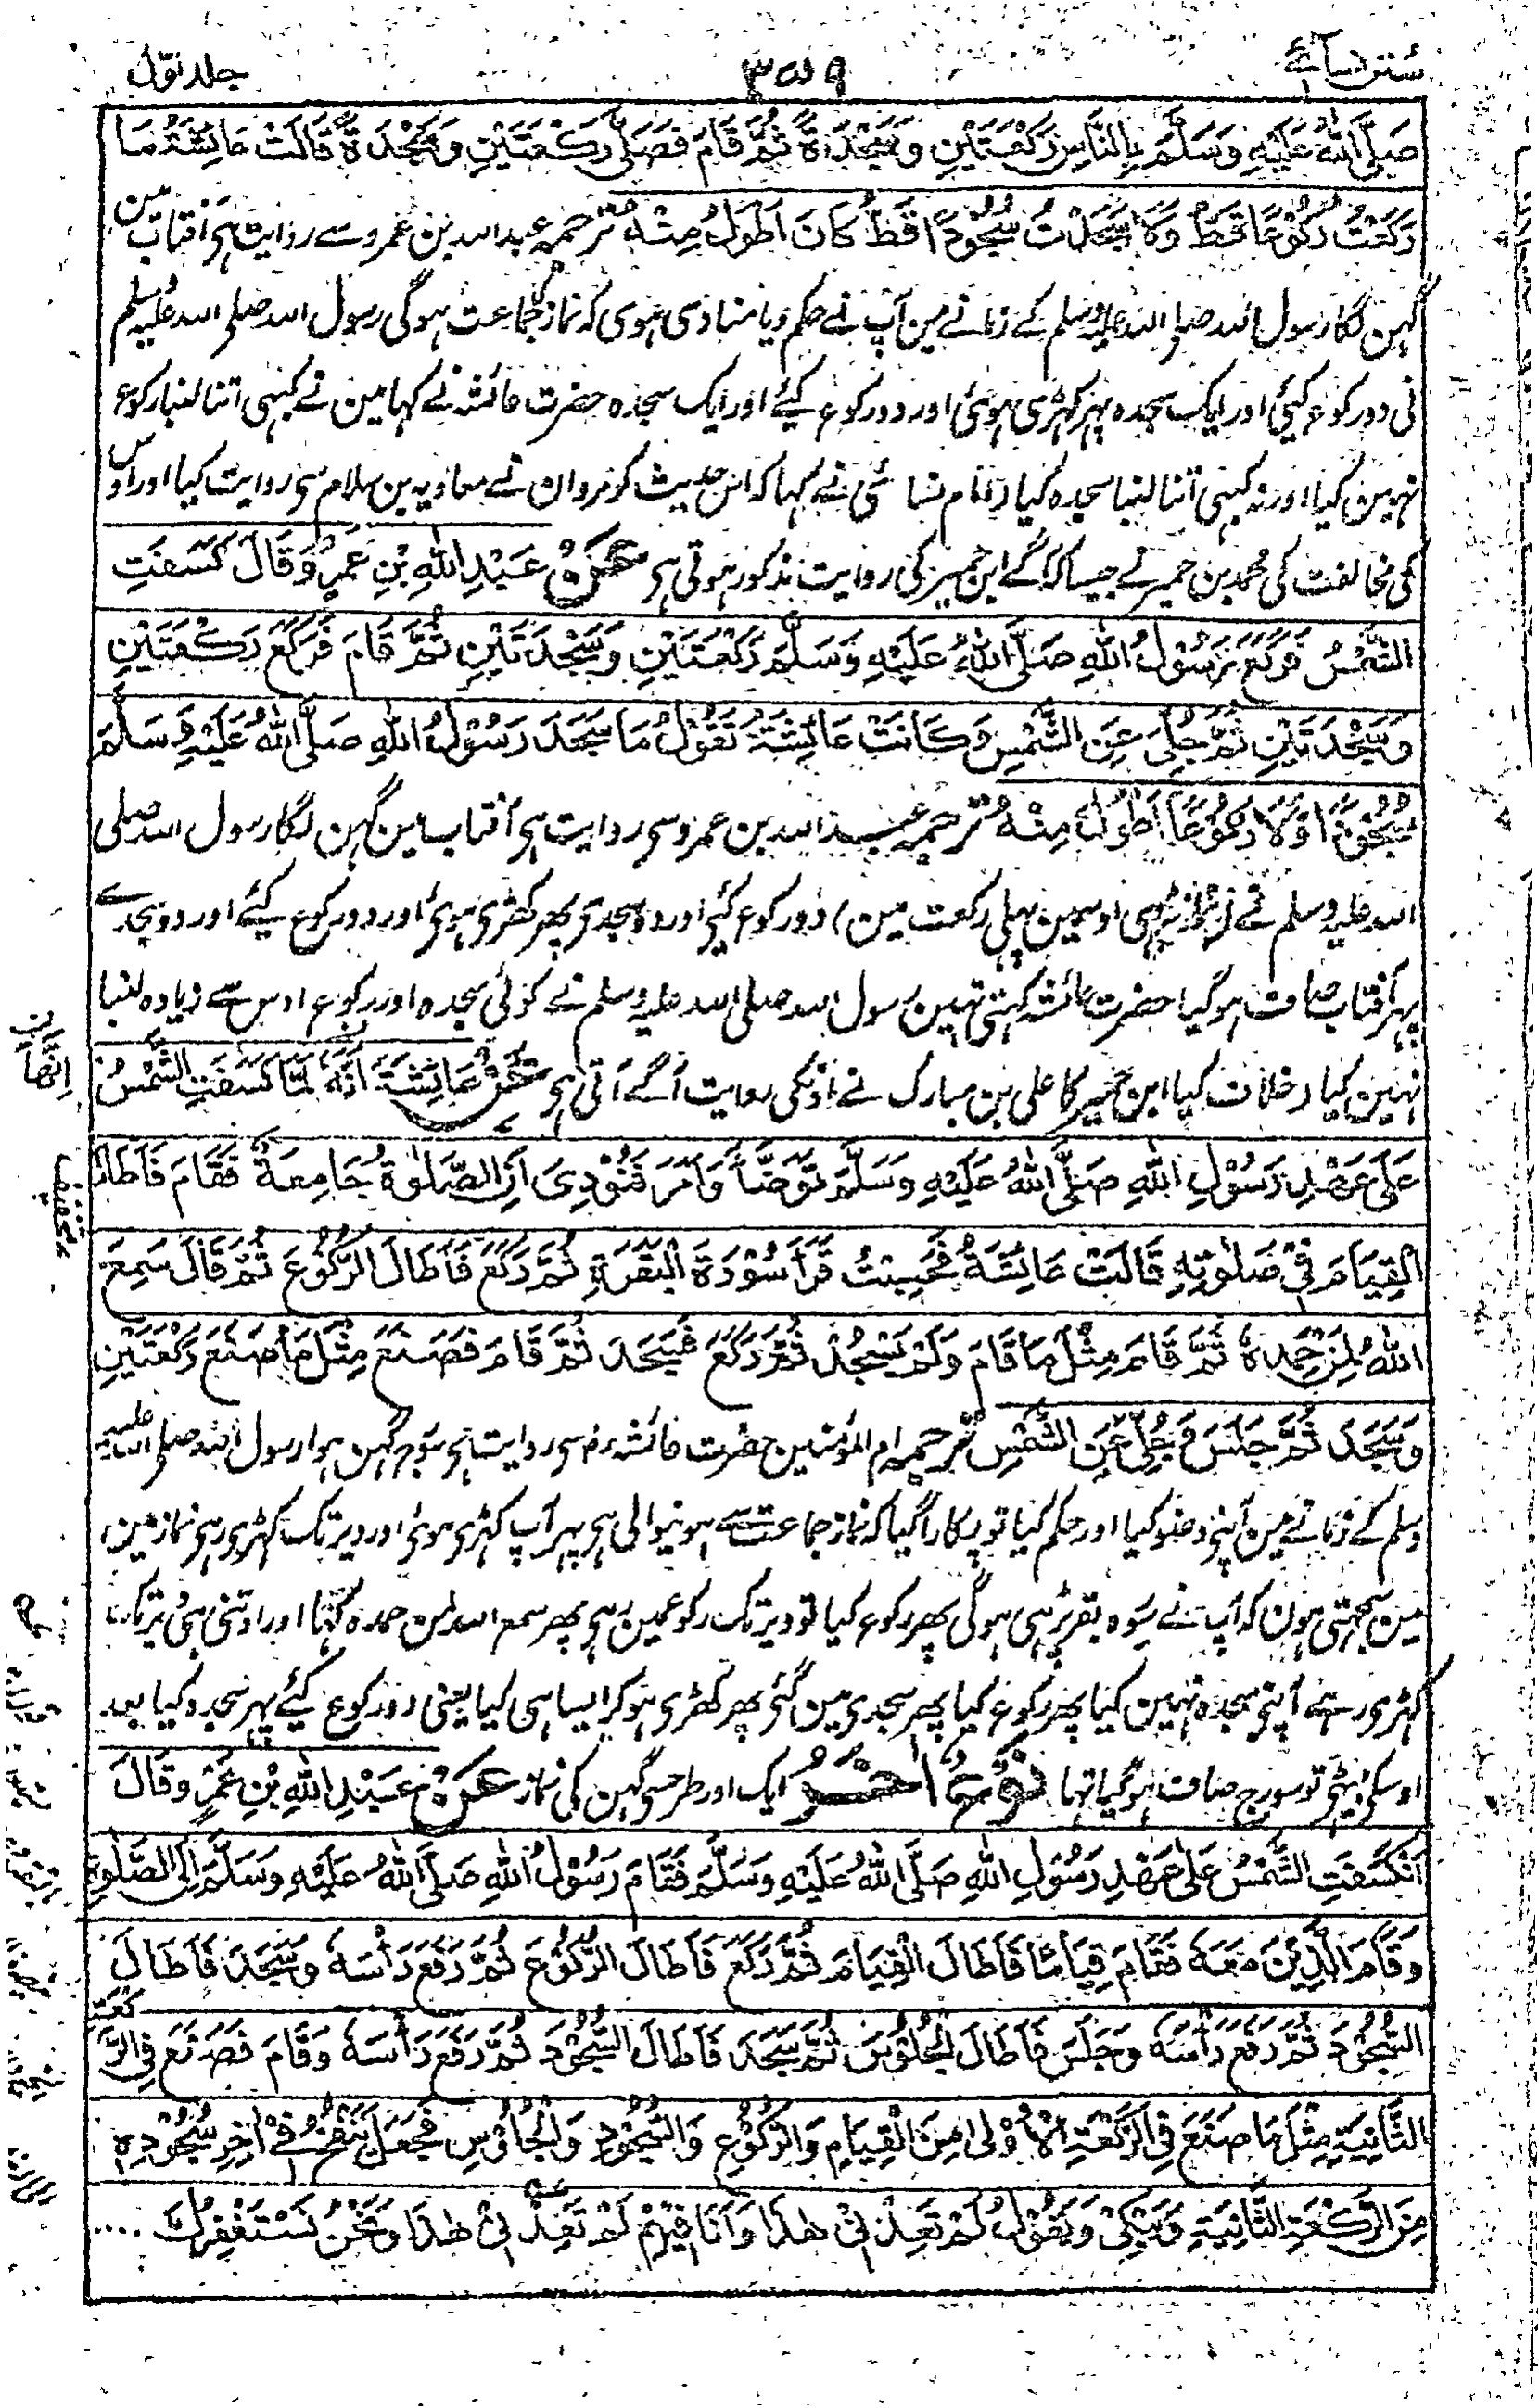 سنن نسائے
۳۵۹
جلد اوّل
صَلَّى اللهُ عَلَيْهِ وَسَلَّمَ بِالنَّاسِ رَكْعَتَيْنِ وَسَجْدَةً ثُمَّ قَامَ فَصَلَّى رَكْعَتَيْنِ وَسَجْدَةً قَالَتْ عَائِشَةُ مَا
رَكَعْتُ رُكُوْعًا قَطُّ وَلَا سَجَدْتُ سُجُوْدًا قَطُّ كَانَ اَطْوَلَ مِنْهُ ترجمہ عبد اللہ بن عمرو سے روایت ہی آفتاب مین
گہن لگا رسول اللہ صلی اللہ علیہ وسلم کے زمانے مین آپ نے حکم دیا منادی ہوی کہ نماز جماعت ہو گی رسول اللہ صلی اللہ علیہ وسلم
نی دو رکوع کیئی اور ایک سجدہ پہر کہڑی ہوئی اور دو رکوع کیئے اور ایک سجدہ حضرت عائشہ نے کہا مین نے کبہی اتنا لنبا رکوع
نہین کیا اور نہ کبہی اتنا لنبا سجدہ کیا (امام نسائی نے کہا کہ اس حدیث کو مروان نے معاویہ بن سلام سی روایت کیا اور اوس
کی مخالفت کی محمد بن حمیر نے جیسا کہ آگے ابن حمیر کی روایت مذکور ہوتی ہی عَنْ عَبْدِ اللهِ بْنِ عَمْرٍو قَالَ كَسَفَتِ
الشَّمْسُ فَرَكَعَ رَسُوْلُ اللهِ صَلَّى اللهُ عَلَيْهِ وَسَلَّمَ رَكْعَتَيْنِ وَسَجْدَتَيْنِ ثُمَّ قَامَ فَرَكَعَ رَكْعَتَيْنِ
وَسَجْدَتَيْنِ ثُمَّ جُلِّيَ عَنِ الشَّمْسِ وَكَانَتْ عَائِشَةُ تَقُوْلُ مَا سَجَدَ رَسُوْلُ اللهِ صَلَّى اللهُ عَلَيْهِ وَسَلَّمَ
سُجُوْدًا وَلَا رُكُوْعًا اَطْوَلَ مِنْهُ ترجمہ عبد اللہ بن عمرو سی روایت ہی آفتاب مین گہن لگا رسول اللہ صلی
اللہ علیہ وسلم نے (نماز پڑہی اوسمین پہلی رکعت مین) دو رکوع کیئی اور دو سجدی پھر کھڑی ہوئی اور دو رکوع کیئے اور دو سجدے
پہر آفتاب صاف ہو گیا حضرت عائشہ کہتی تہین رسول اللہ صلی اللہ علیہ وسلم نے کوئی سجدہ اور رکوع اوس سے زیادہ لنبا
نہین کیا (خلاف کیا ابن حمیر کا علی بن مبارک نے اونکی روایت آگے آتی ہی عَنْ عَائِشَةَ اَنَّهُ لَمَّا كَسَفَتِ الشَّمْسُ
عَلٰى عَهْدِ رَسُوْلِ اللهِ صَلَّى اللهُ عَلَيْهِ وَسَلَّمَ تَوَضَّأَ وَاَمَرَ فَنُوْدِىَ اَنِ الصَّلٰوةُ جَامِعَةٌ فَقَامَ فَاَطَالَ
الْقِيَامَ فِيْ صَلٰوتِهٖ قَالَتْ عَائِشَةُ فَحَسِبْتُ قَرَأَ سُوْرَةَ الْبَقَرَةِ ثُمَّ رَكَعَ فَاَطَالَ الرُّكُوْعَ ثُمَّ قَالَ سَمِعَ
اللهُ لِمَنْ حَمِدَهٗ ثُمَّ قَامَ مِثْلَ مَا قَامَ وَلَمْ يَسْجُدْ ثُمَّ رَكَعَ فَسَجَدَ ثُمَّ قَامَ فَصَنَعَ مِثْلَ مَا صَنَعَ رَكْعَتَيْنِ
وَسَجَدَ ثُمَّ جَلَسَ وَجُلِّيَ عَنِ الشَّمْسِ ترجمہ ام المؤمنین حضرت عائشہ رضی روایت ہی سورج گہن ہوا رسول اللہ صلی اللہ علیہ
وسلم کے زمانے مین آپنی وضو کیا اور حکم کیا تو پکارا گیا کہ نماز جماعت سے ہونیوالی ہی پہر آپ کہڑی ہوئی اور دیر تک کہڑی رہی نماز مین
مین سمجہتی ہون کہ آپ نے سورہ بقر پڑہی ہو گی پھر رکوع کیا تو دیر تک رکوع مین رہی پھر سمع اللہ لمن حمدہ کہا اور اوتنی ہی دیر تک
کہڑی رہے اپنی سجدہ نہین کیا پھر رکوع کیا پھر سجدی مین گئی پھر کھڑی ہو کر ایسا ہی کیا یعنی دو رکوع کیئے پہر سجدہ کیا بعد
اوسکی بیٹھی تو سورج صاف ہو گیا تہا نَوْعٌ اٰخَرُ ایک اور طرحسی گہن کی نماز عَنْ عَبْدِ اللهِ بْنِ عَمْرٍو قَالَ
اِنْكَسَفَتِ الشَّمْسُ عَلٰى عَهْدِ رَسُوْلِ اللهِ صَلَّى اللهُ عَلَيْهِ وَسَلَّمَ فَقَامَ رَسُوْلُ اللهِ صَلَّى اللهُ عَلَيْهِ وَسَلَّمَ اِلَى الصَّلٰوةِ
وَقَامَ الَّذِيْنَ مَعَهٗ فَقَامَ قِيَامًا فَاَطَالَ الْقِيَامَ ثُمَّ رَكَعَ فَاَطَالَ الرُّكُوْعَ ثُمَّ رَفَعَ رَأْسَهٗ وَسَجَدَ فَاَطَالَ
السُّجُوْدَ ثُمَّ رَفَعَ رَأْسَهٗ وَجَلَسَ فَاَطَالَ الْجُلُوْسَ ثُمَّ سَجَدَ فَاَطَالَ السُّجُوْدَ ثُمَّ رَفَعَ رَأْسَهٗ وَقَامَ فَصَنَعَ فِى الرَّكْعَةِ
الثَّانِيَةِ مِثْلَ مَا صَنَعَ فِى الرَّكْعَةِ الْاُوْلٰى مِنَ الْقِيَامِ وَالرُّكُوْعِ وَالسُّجُوْدِ وَالْجُلُوْسِ فَجَعَلَ يَنْفُخُ فِيْ اٰخِرِ سُجُوْدِهٖ
مِنَ الرَّكْعَةِ الثَّانِيَةِ وَيَبْكِيْ وَيَقُوْلُ لَمْ تَعِدْنِيْ هٰذَا وَاَنَا فِيْهِمْ لَمْ تَعِدْنِيْ هٰذَا وَنَحْنُ نَسْتَغْفِرُكَ ....